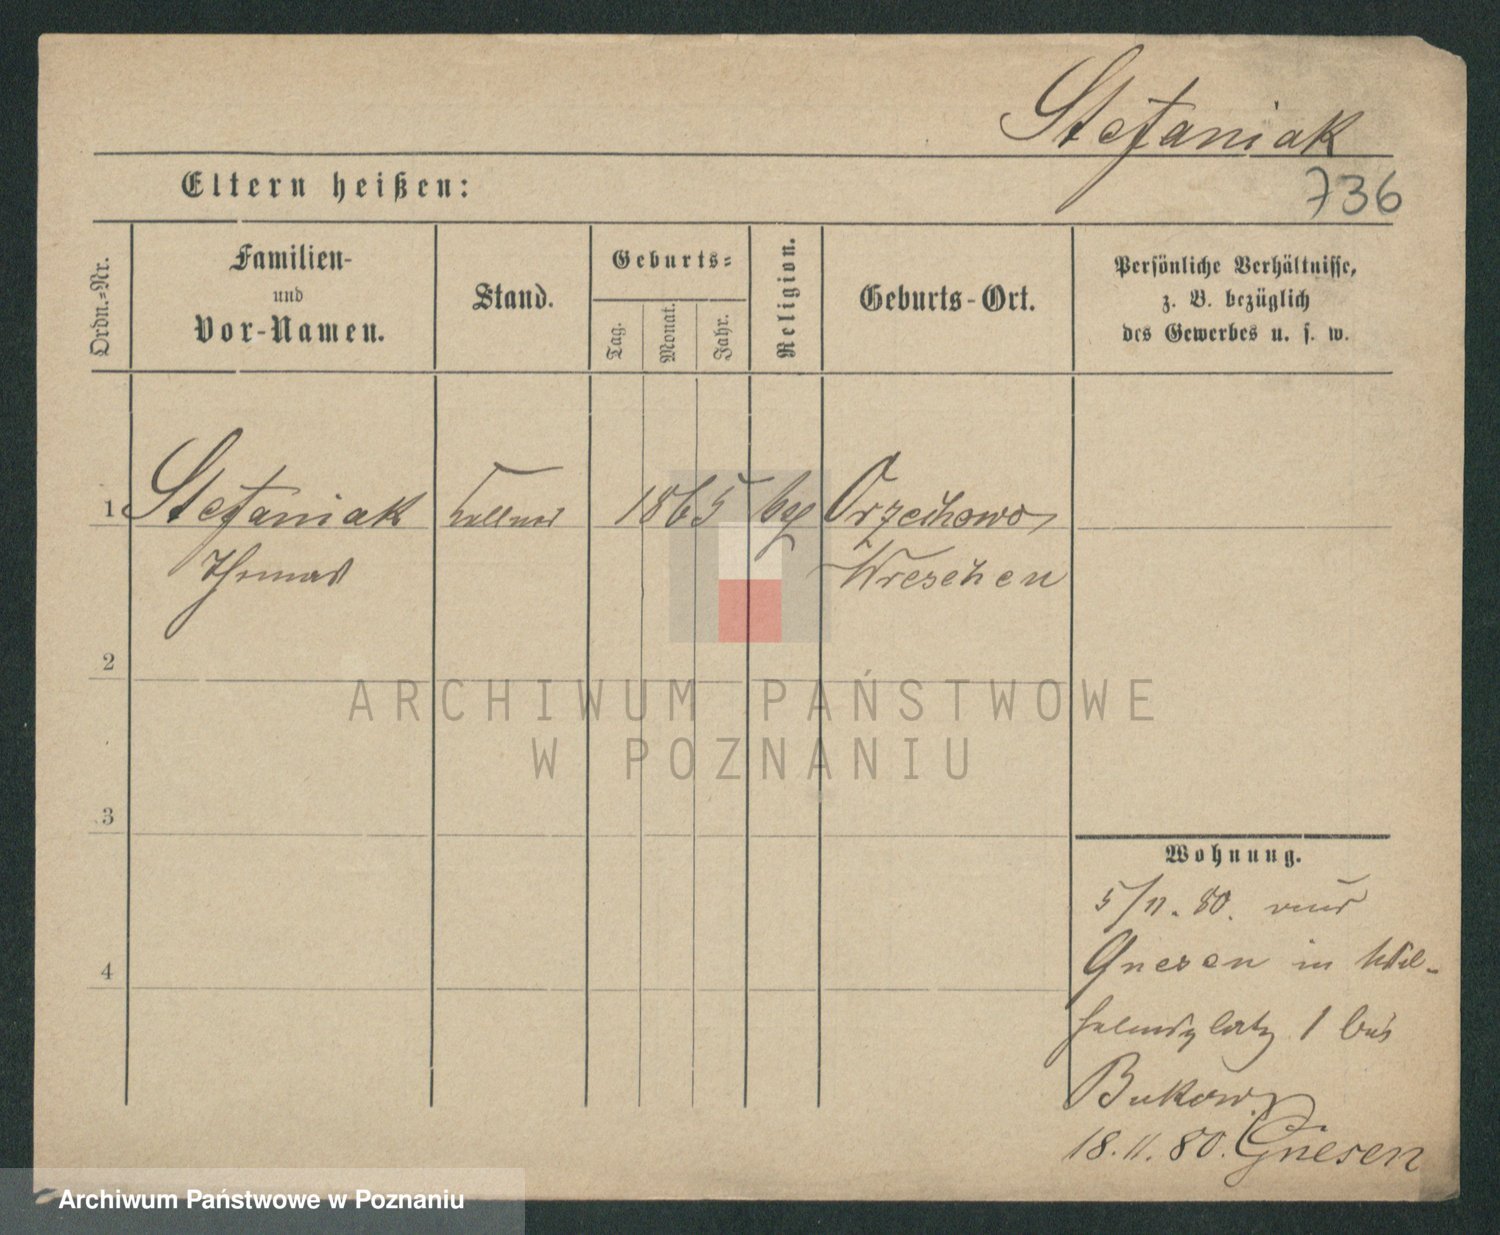 Stefaniak
Eltern heißen:
736
Ordn.-Nr.
Familien-
und
Vor-Namen.
Stand.
Geburts-
Tag.
Monat.
Jahr.
Religion.
Geburts-Ort.
Persönliche Verhältnisse,
z. B. bezüglich
des Gewerbes u. s. w.
1 Stefaniak Kellner 1865 Orzechowo
Thomas Wreschen
2
3
4
Wohnung.
5/11. 80. aus
Gnesen in Wil-
helmsplatz 1 bei
Bukow
18. 11. 80. Gnesen
ARCHIWUM PAŃSTWOWE
W POZNANIU
Archiwum Państwowe w Poznaniu